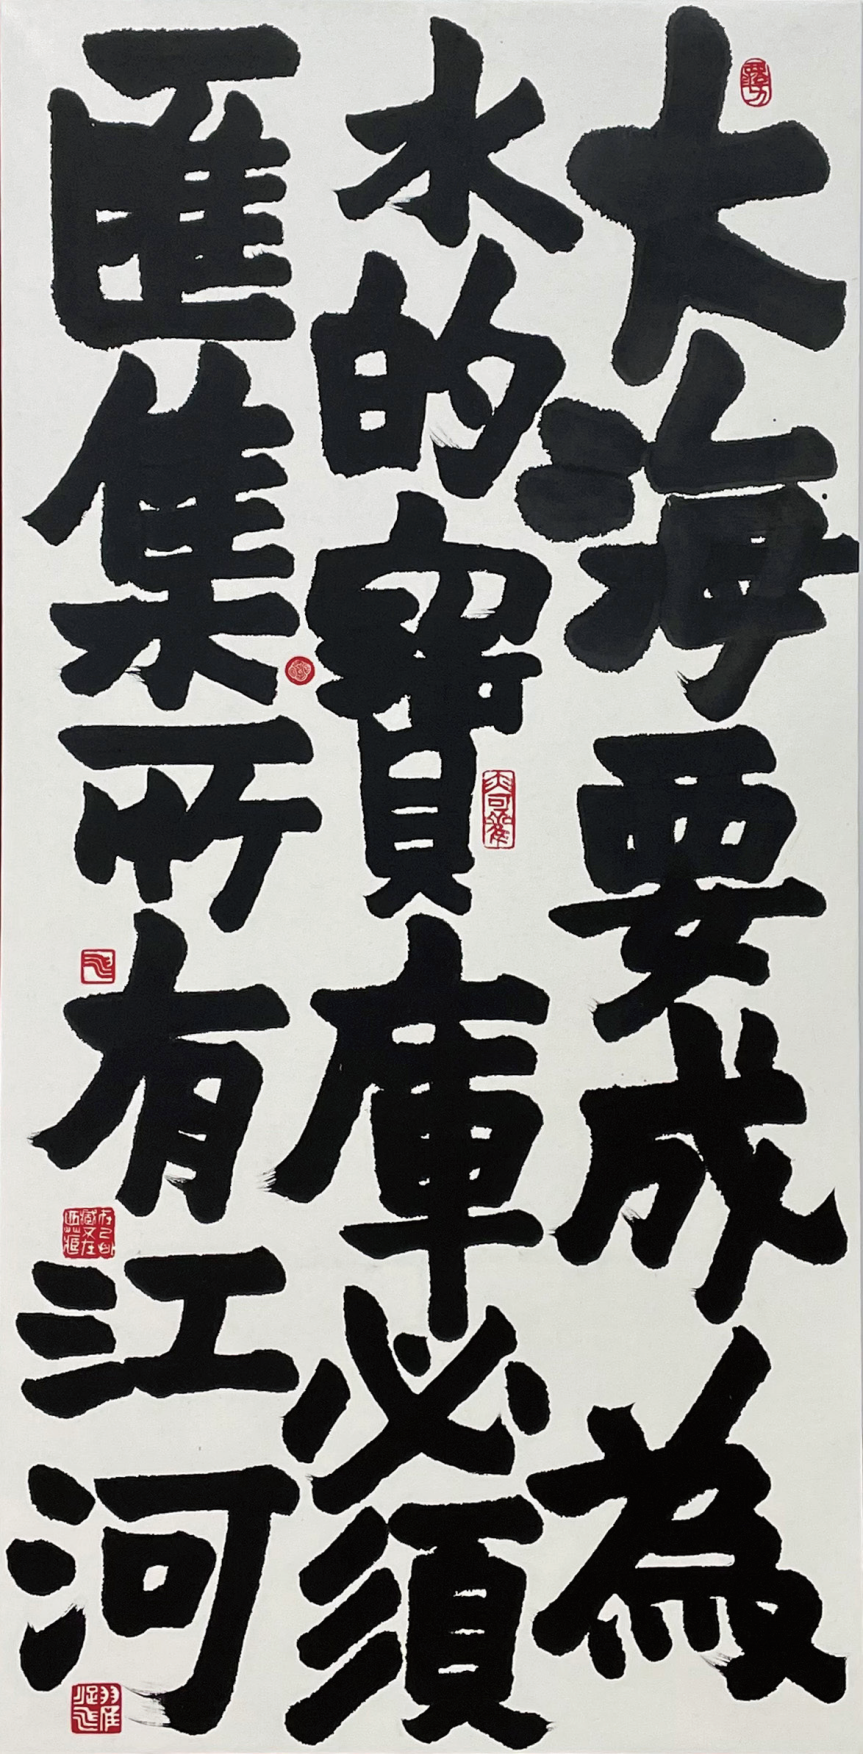 大海要成為
水的寶庫必須
匯集所有江河